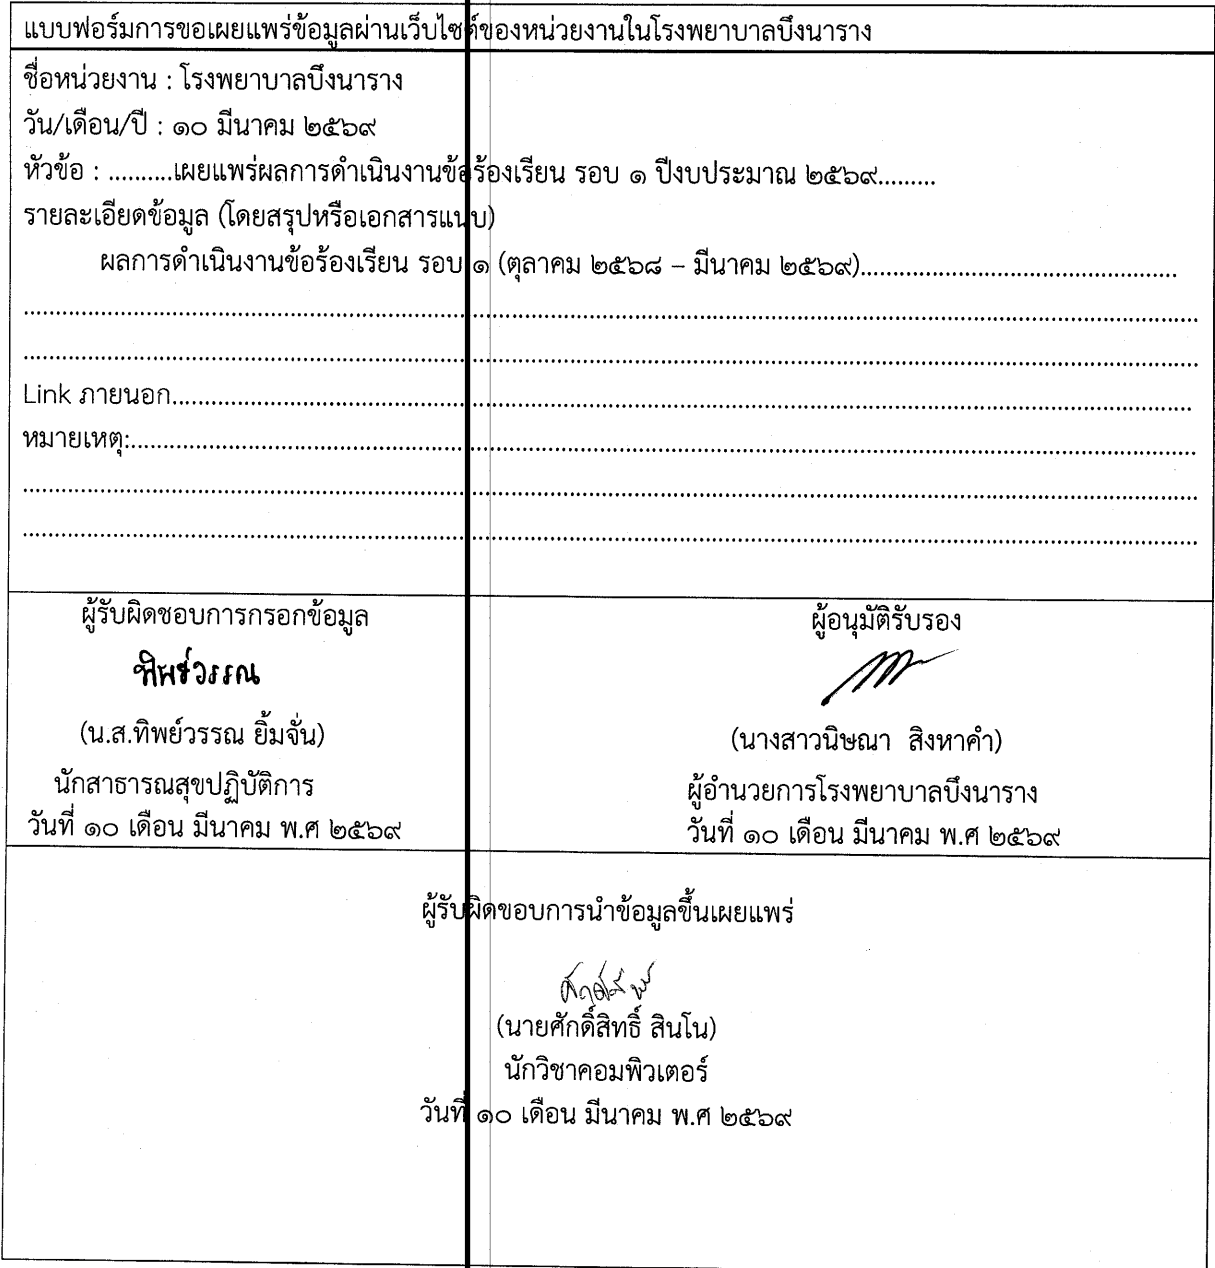 แบบฟอร์มการขอเผยแพร่ข้อมูลผ่านเว็บไซต์ของหน่วยงานในโรงพยาบาลบึงนาราง
ชื่อหน่วยงาน : โรงพยาบาลบึงนาราง
วัน/เดือน/ปี : ๑๐ มีนาคม ๒๕๖๙
หัวข้อ : ..........เผยแพร่ผลการดำเนินงานข้อร้องเรียน รอบ ๑ ปีงบประมาณ ๒๕๖๙.........
รายละเอียดข้อมูล (โดยสรุปหรือเอกสารแนบ)
ผลการดำเนินงานข้อร้องเรียน รอบ ๑ (ตุลาคม ๒๕๖๘ – มีนาคม ๒๕๖๙)..................................................
Link ภายนอก..................................................
หมายเหตุ:..................................................
ผู้รับผิดชอบการกรอกข้อมูล
ทิพย์วรรณ
(น.ส.ทิพย์วรรณ ยิ้มจั่น)
นักสาธารณสุขปฏิบัติการ
วันที่ ๑๐ เดือน มีนาคม พ.ศ ๒๕๖๙
ผู้อนุมัติรับรอง
(นางสาวนิษณา สิงหาคำ)
ผู้อำนวยการโรงพยาบาลบึงนาราง
วันที่ ๑๐ เดือน มีนาคม พ.ศ ๒๕๖๙
ผู้รับผิดขอบการนำข้อมูลขึ้นเผยแพร่
(นายศักดิ์สิทธิ์ สินโน)
นักวิชาคอมพิวเตอร์
วันที่ ๑๐ เดือน มีนาคม พ.ศ ๒๕๖๙